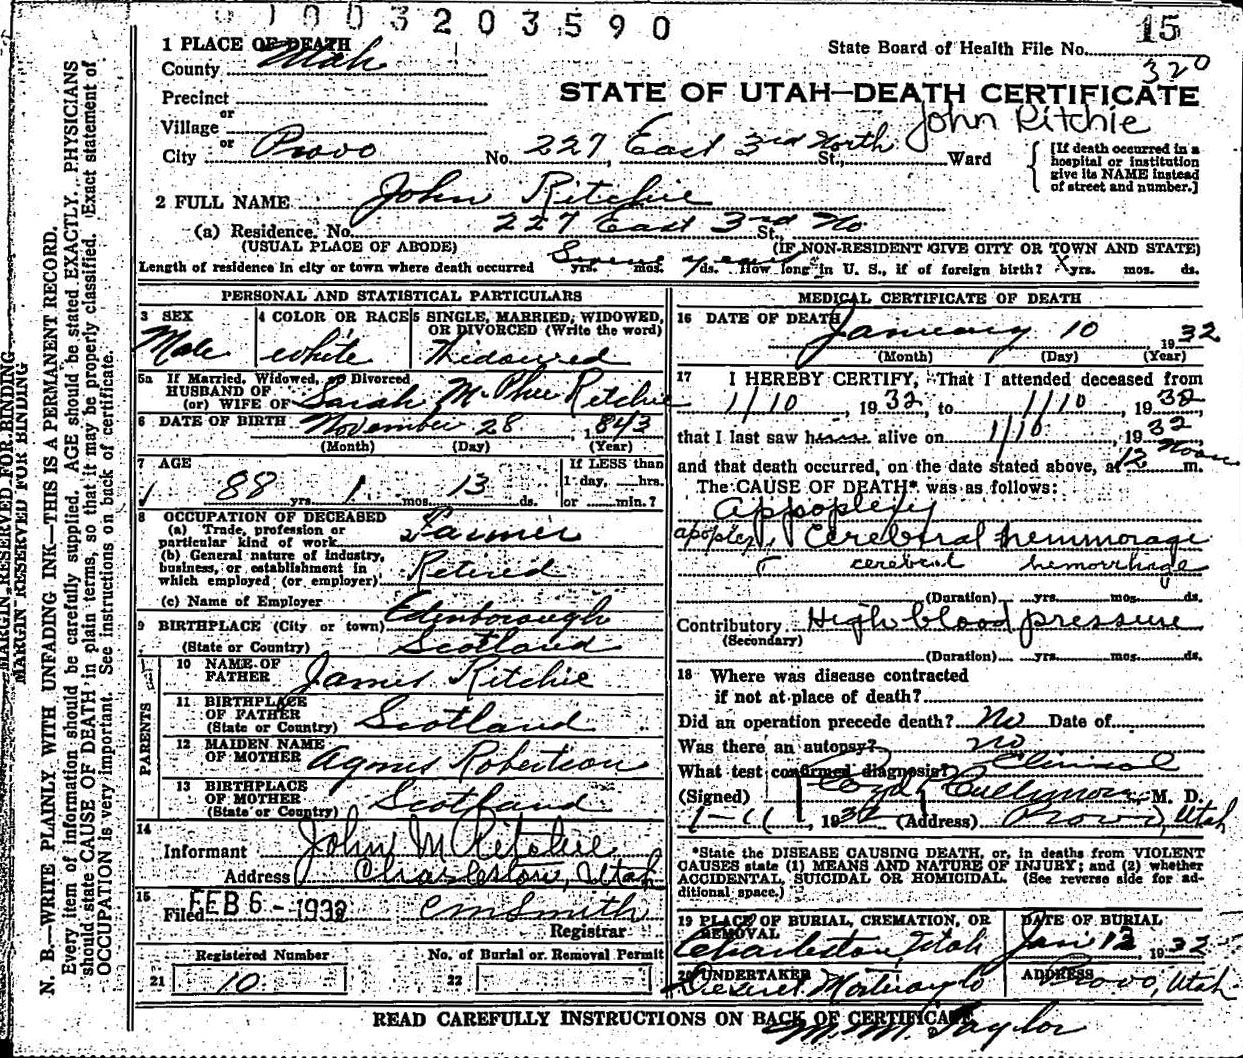 1003203590
15
State Board of Health File No.
320
1 PLACE OF DEATH
County Utah
STATE OF UTAH—DEATH CERTIFICATE
John Ritchie
Precinct
or
Village
or
City Provo No. 227 East 3rd North St., Ward
[If death occurred in a
hospital or institution
give its NAME instead
of street and number.]
2 FULL NAME John Ritchie
(a) Residence. No. 227 East 3rd No St.,
(USUAL PLACE OF ABODE) (IF NON-RESIDENT GIVE CITY OR TOWN AND STATE)
Length of residence in city or town where death occurred years yrs. mos. ds. How long in U. S., if of foreign birth? yrs. mos. ds.
PERSONAL AND STATISTICAL PARTICULARS
3 SEX
Male
4 COLOR OR RACE
White
5 SINGLE, MARRIED, WIDOWED,
OR DIVORCED (Write the word)
Widowed
5a If Married, Widowed, or Divorced
HUSBAND OF
(or) WIFE OF Sarah McPhee Ritchie
6 DATE OF BIRTH November 28, 1843
(Month) (Day) (Year)
7 AGE
88 yrs. 1 mos. 13 ds.
If LESS than
1 day, hrs.
or min.?
8 OCCUPATION OF DECEASED
(a) Trade, profession or
particular kind of work Farmer
(b) General nature of industry,
business, or establishment in
which employed (or employer) Retired
(c) Name of Employer
9 BIRTHPLACE (City or town) Edenborough
(State or Country) Scotland
PARENTS
10 NAME OF
FATHER James Ritchie
11 BIRTHPLACE
OF FATHER
(State or Country) Scotland
12 MAIDEN NAME
OF MOTHER Agnes Robertson
13 BIRTHPLACE
OF MOTHER
(State or Country) Scotland
14
Informant John M Ritchie
Address Charleston, Utah
15
Filed FEB 6 - 1932 C M Smith
Registrar
Registered Number
21 10
No. of Burial or Removal Permit
22
MEDICAL CERTIFICATE OF DEATH
16 DATE OF DEATH
January 10, 1932
(Month) (Day) (Year)
17 I HEREBY CERTIFY, That I attended deceased from
1/10, 1932, to 1/10, 1932
that I last saw h alive on 1/10, 1932
and that death occurred, on the date stated above, at 12 Noon m.
The CAUSE OF DEATH* was as follows:
Appoplexy
apoplexy, Cerebral hemmorage
cerebral hemorrhage
(Duration) yrs. mos. ds.
Contributory High blood pressure
(Secondary)
(Duration) yrs. mos. ds.
18 Where was disease contracted
if not at place of death?
Did an operation precede death? No Date of
Was there an autopsy? no
What test confirmed diagnosis? Clinical
(Signed) Lloyd L Cullimore, M. D.
1-11, 1932 (Address) Provo, Utah
*State the DISEASE CAUSING DEATH, or, in deaths from VIOLENT
CAUSES state (1) MEANS AND NATURE OF INJURY; and (2) whether
ACCIDENTAL, SUICIDAL OR HOMICIDAL. (See reverse side for ad-
ditional space.)
19 PLACE OF BURIAL, CREMATION, OR
REMOVAL
Charleston, Utah
DATE OF BURIAL
Jan 12, 1932
20 UNDERTAKER
Deseret Mortuary Co
ADDRESS
Provo, Utah
READ CAREFULLY INSTRUCTIONS ON BACK OF CERTIFICATE
M. M. Taylor
MARGIN RESERVED FOR BINDING
MARGIN RESERVED FOR BINDING
N. B.—WRITE PLAINLY, WITH UNFADING INK—THIS IS A PERMANENT RECORD.
Every item of information should be carefully supplied. AGE should be stated EXACTLY. PHYSICIANS
should state CAUSE OF DEATH in plain terms, so that it may be properly classified. Exact statement of
OCCUPATION is very important. See instructions on back of certificate.